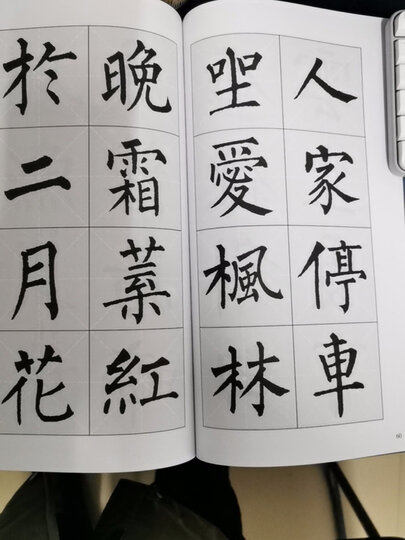 人家停車
坐愛楓林
晚霜葉紅
於二月花
60